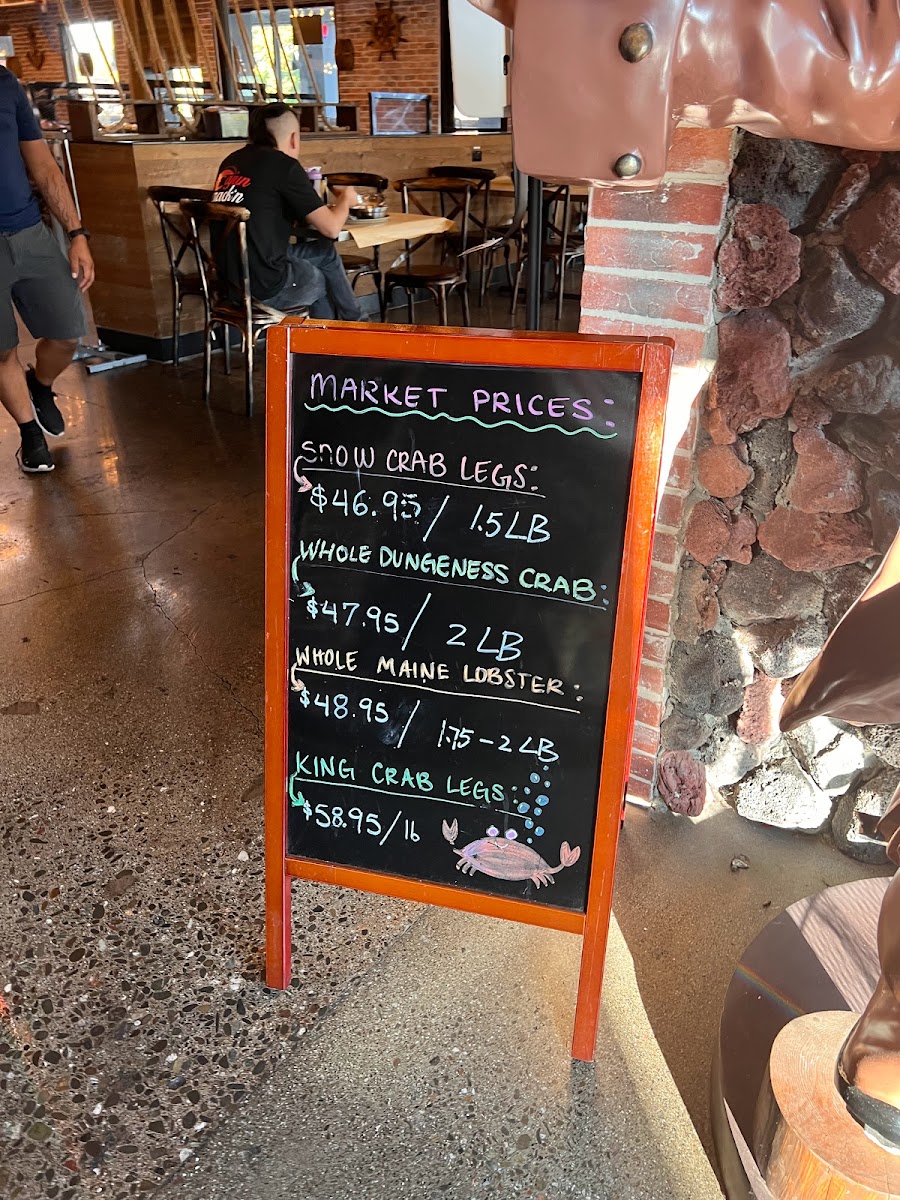 MARKET PRICES:
SNOW CRAB LEGS:
$46.95 / 1.5 LB
WHOLE DUNGENESS CRAB:
$47.95 / 2 LB
WHOLE MAINE LOBSTER:
$48.95 / 1.75 - 2 LB
KING CRAB LEGS:
$58.95/lb